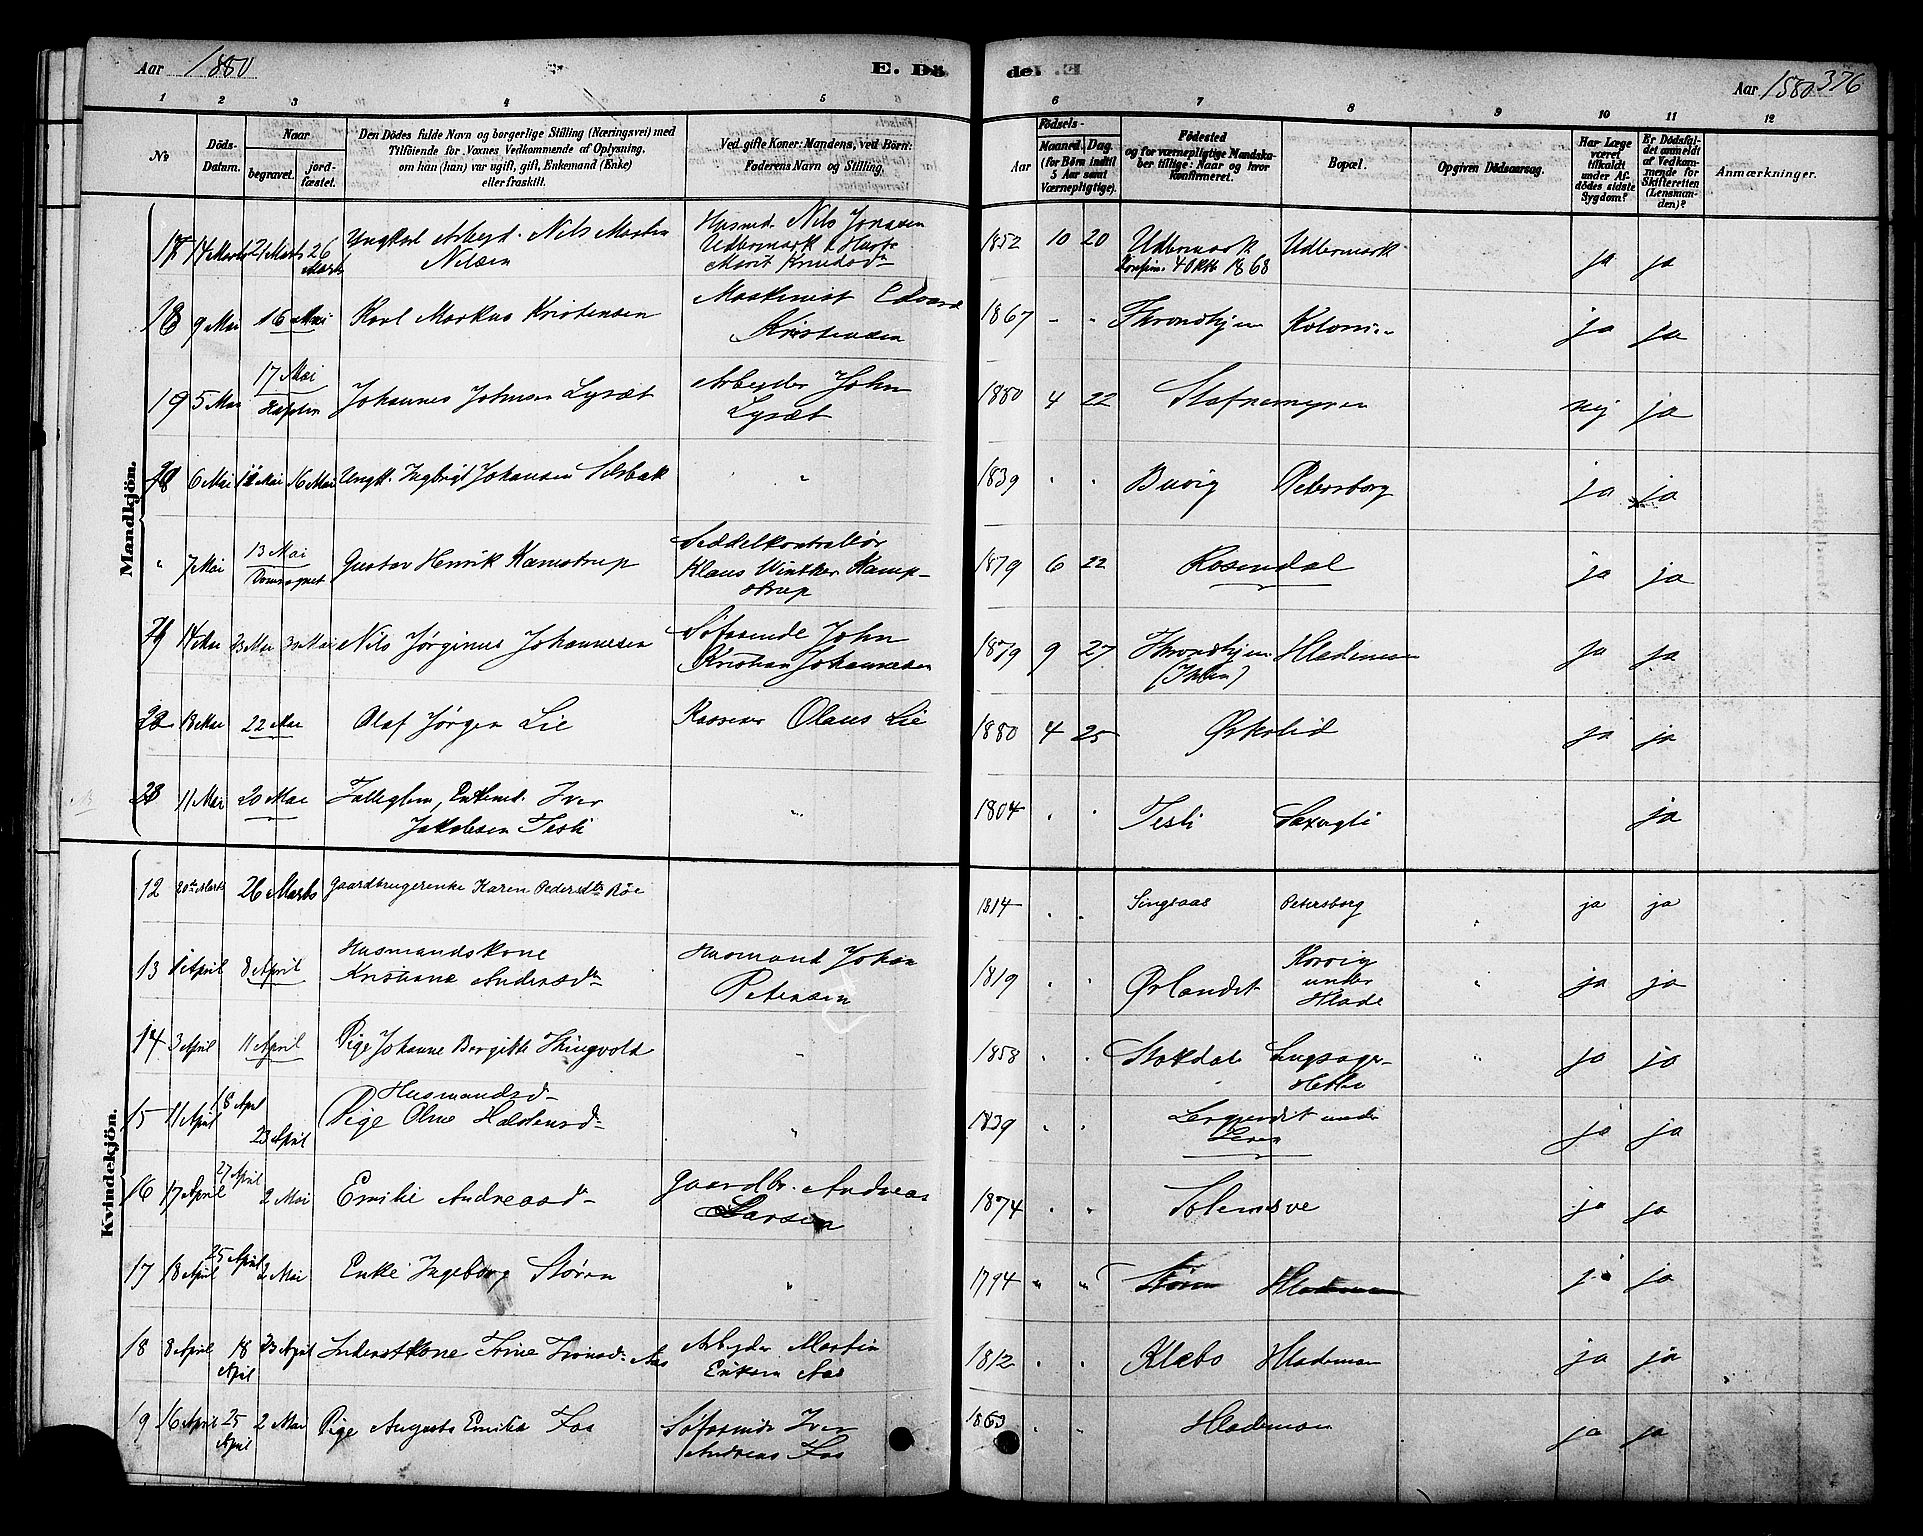 Aar 1880
E. Dö
de.
Aar 1880 376
1 2 3 4 5 6 7 8 9 10 11 12
No
Döds-Datum.
Naar begravet. jordfæstet.
Den Dödes fulde Navn og borgerlige Stilling (Næringsvei) med Tilföiende for Voxnes Vedkommende af Oplysning, om han (hun) var ugift, gift, Enkemand (Enke) eller fraskilt.
Ved gifte Koner: Mandens, ved Börn: Faderens Navn og Stilling.
Födsels-
Aar
Maaned. Dag. (for Börn indtil 5 Aar samt Værnepligtige).
Födested og for værnepligtige Mandskaber tillige: Naar og hvor konfirmeret.
Bopæl.
Opgiven Dödsaarsag.
Har Læge været tilkaldt under Afdödes sidste Sygdom?
Er Dödsfaldet anmeldt af Vedkommende for Skifteretten (Lensmanden)?
Anmærkninger.
Mandkjön.
17 17 Marts 21 Marts 26 Marts Ungkarl Arbejd. Nils Martin Nilsen Husmd. Nils Jonasen Udlermark & Hustr Marit Knudsdr 1852 10 20 Udlermark Konfirm. 4 Okt. 1868 Udlermark ja ja
18 9 Mai 16 Mai Karl Markus Kristensen Maskinist Edvard Kristensen 1867 - " Throndhjem Kolonien ja ja
19 5 Mai 17 Mai Johannes Johnsen Lysæt Arbejder John Lysæt 1880 4 22 Stafnemyren nej ja
20 6 Mai 12 Mai 16 Mai Ungk. Ingbrigt Johansen Selsbak " 1839 " " Buvig Petersborg ja ja
" 7 Mai 13 Mai Domsognet Gustav Henrik Kamstrup Seddelkontrollør Klaus Winther Kampstrup 1879 6 22 Rosendal ja ja
21 14 Mai 23 Mai 30 Mai Nils Jørginus Johannesen Søfarende John Kristian Johannesen 1879 9 27 Throndhjem (Ihlen) Hlademoen ja ja
22 18 Mai 22 Mai Olaf Jørgen Lie Kasserer Olaus Lie 1880 4 25 Ørkelid ja ja
23 11 Mai 20 Mai Fattiglem, Enkemd. Iver Jakobsen Tesli " 1804 " " Tesli Saxvigli ja
Kvindekjön.
12 20de Marts 26 Marts Gaardbrugerenke Karen Pedersdtr Røe 1814 " " Singsaas Petersborg " ja ja
13 1 April 8 April Husmandskone Kristiane Andersdr Husmand Johan Petersen 1819 " " Ørlandet Korsvig under Hlade " ja ja
14 3 April 11 April Pige Johanne Bergitte Thingvold " 1858 " " Stokdal " ja ja
15 11 April 18 April 23 April Husmandsd. Pige Oline Halstensdr " 1839 " " Lerquendet under Leren ja ja
16 17 April 27 April 2 Mai Emilie Andreasdr Gaardbr. Andreas Larsen 1874 " " Solemsve ja ja
17 18 April 25 April 2 Mai Enke Ingeborg Støren " 1794 " " Støren Hlademoen ja ja
18 8 April 18 April 23 April Inderstkone Trine Aas Arbejder Martin Eriksen Aas 1812 " " Klæbo Hlademoen ja ja
19 16 April 25 April 2 Mai Pige Augusta Emilia Fos Søfarende Iver Andreas Fos 1863 " " Hlademoen ja ja